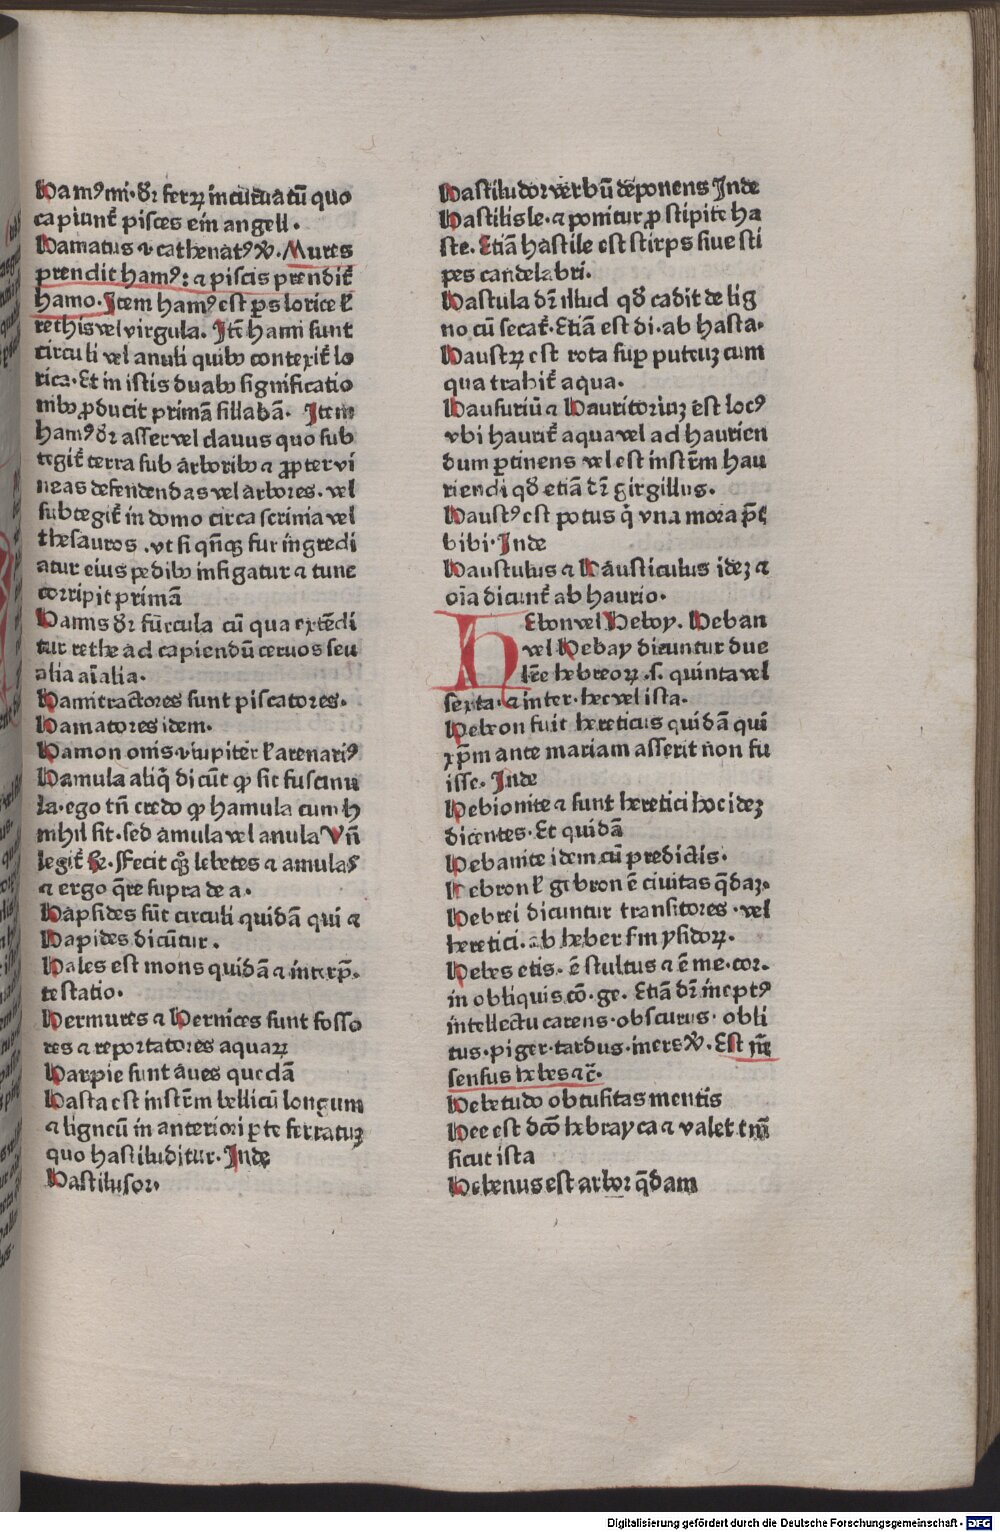 Hamꝰ mi· dr̄ ferꝝ incuruatū quo
capiunt̄ pisces ein angell·
Hamatus ꝛ cathenatꝰ Ꝟ· Mures
prendit hamꝰ: ꝛ piscis prendit̄
hamo· Item hamꝰ est ꝑs lorice ł
rethis vel virgula. Itē hami sunt
circuli vel anuli quibꝫ contexit̄ lo
rica· Et in istis duabꝫ significatio
nibꝫ ꝓducit primā sillabā· Item
hamꝰ dr̄ asser vel clauus quo sub
tegit̄ terra sub arboribꝫ ꝛ ꝓpter vi
neas defendendas vel arbores. vel
subtegit̄ in domo circa scrinia vel
thesauros . vt si qn̄qꝫ fur ingredi
atur eius pedibꝫ infigatur ꝛ tunc
corripit primā
Hamis dr̄ furcula cū qua extēdi
tur rethe ad capiendū ceruos seu
alia aīalia·
Hamitractores sunt piscatores·
Hamatores idem·
Hamon onis ·i· iupiter ł arenariꝰ
Hamula aliq̄ dicūt ꝙ sit fuscinu
la· ego tn̄ credo ꝙ hamula cum h
nihil sit· sed amula vel anula Vn̄
legit̄ Fecit qꝫ lebetes ꝛ amulas
ꝛ ergo q̄re supra de a·
Hapsides sūt circuli quidā qui ꝛ
Hapides dicūtur .
Hales est mons quidā ꝛ interp̄·
testatio·
Hermures ꝛ Hernices sunt fosso
res ꝛ reportatores aquaꝝ
Harpie sunt aues quedā
Hasta est instr̄m bellicū longum
ꝛ ligneū in anteriori ꝑte ferratuꝫ
quo hastiluditur· Inde
Hastilusor·
Hastiludor verbū deponens Inde
Hastilis le· ꝛ ponitur ꝓ stipite ha
ste. Etiā hastile est stirps siue sti
pes candelabri·
Hastula dr̄ illud qd̄ cadit de lig
no cū secat̄· Etiā est di· ab hasta·
Haustꝝ est rota suꝑ puteuꝫ cum
qua trahit̄ aqua·
Hausuriū ꝛ Hauritoriuꝫ est locꝰ
vbi haurit̄ aqua vel ad haurien
dum ꝑtinens vel est instr̄m hau
riendi qd̄ etiā dr̄ girgillus·
Haustꝰ est potus q̄ vna mora p̄t
bibi· Inde
Haustulus ꝛ Hausticulus ideꝫ ꝛ
oīa dicunt̄ ab haurio·
Hebon vel Heboy. Heban
vel Hebay dicuntur due
lr̄e hebreoꝝ ·s· quinta vel
sexta· ꝛ inter· hec vel ista·
Hebeon fuit hereticus quidā qui
xp̄m ante mariam asserit non fu
isse· Inde
Hebionite ꝛ sunt heretici hoc ideꝫ
dicentes· Et quidā
Hebanite idem cū predictis·
Hebron ł gebron ē ciuitas q̄daꝫ·
Hebrei dicuntur transitores ·vel
heretici· ab heber sm ysidoꝝ·
Hebes etis· ē stultus ꝛ ē me· cor·
in obliquis· cō· ge· Etiā dr̄ ineptꝰ
intellectu carens· obscurus· obli
tus· piger· tardus· iners Ꝟ· Est
sensus hebes ꝛc̄·
Hebetudo obtusitas mentis
Hec est dc̄o hebrayca ꝛ valet tm̄
sicut ista
Hebenus est arbor q̄dam
Digitalisierung gefördert durch die Deutsche Forschungsgemeinschaft · DFG